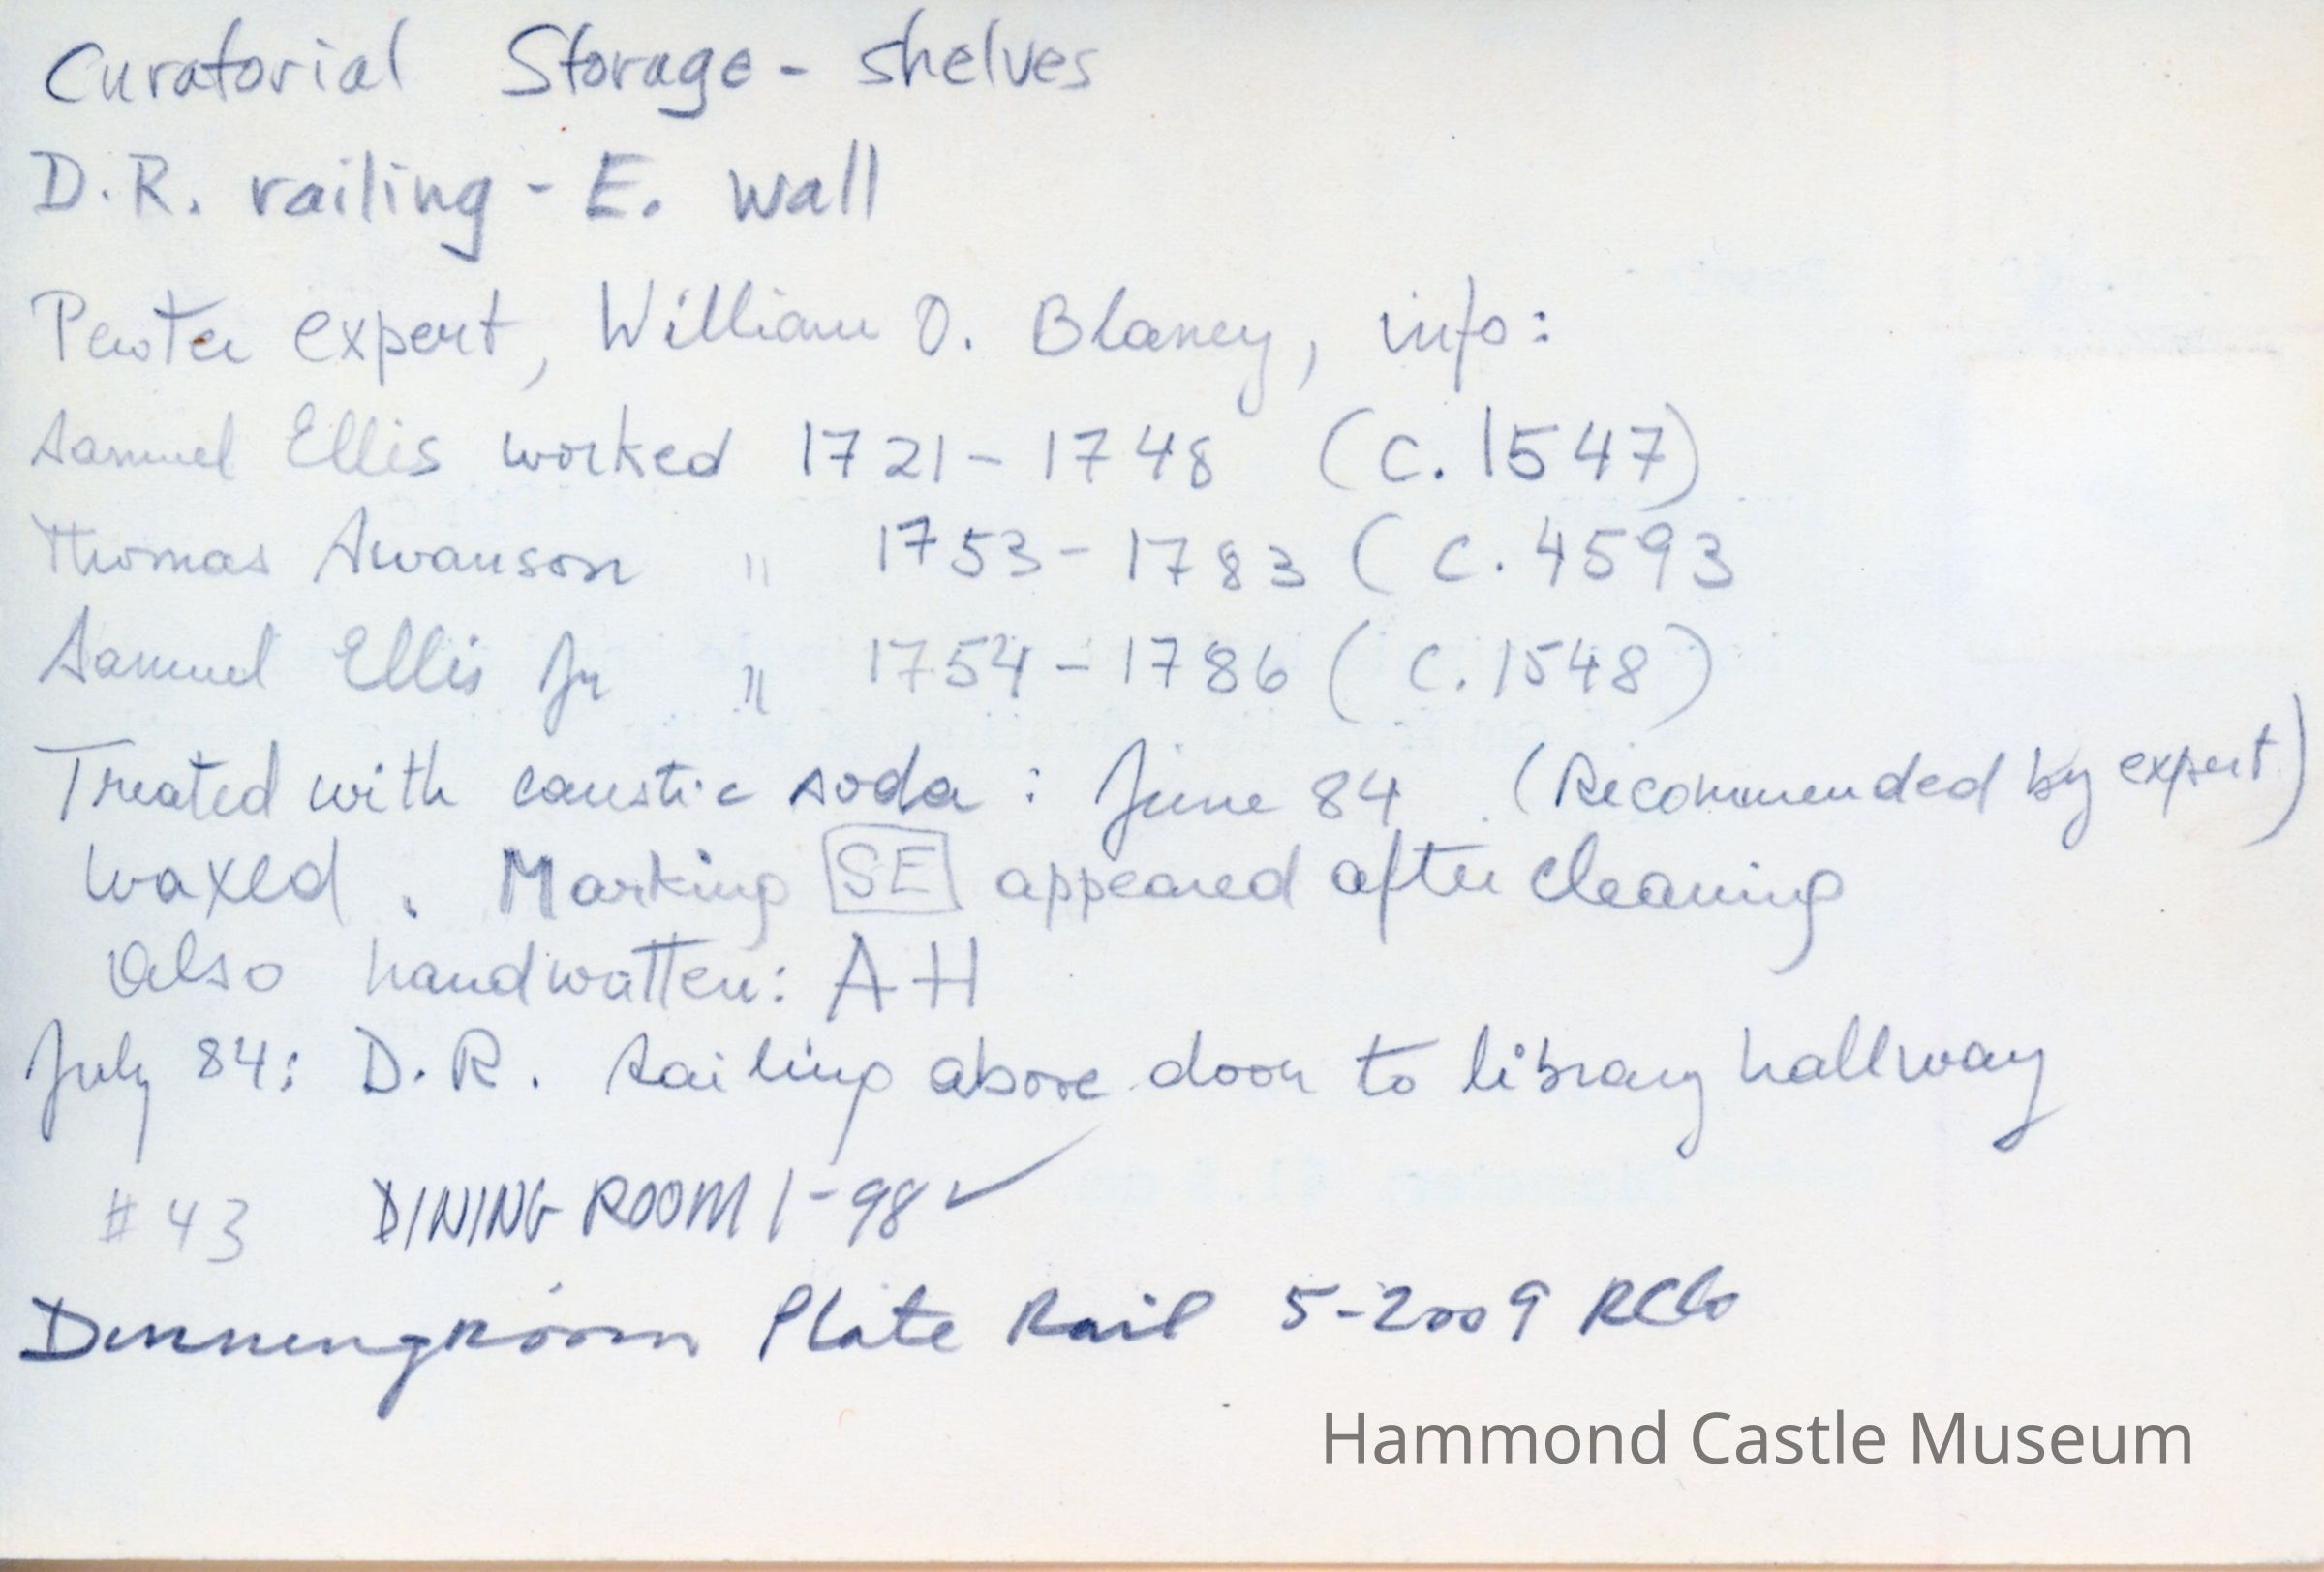 Curatorial Storage - shelves
D.R. railing - E. wall
Pewter expert, William O. Blaney, info:
Samuel Ellis worked 1721 - 1748 (C. 1547)
Thomas Swanson " 1753 - 1783 (C. 4593
Samuel Ellis Jr " 1754 - 1786 (C. 1548)
Treated with caustic soda : June 84 (Recommended by expert)
waxed. Marking SE appeared after cleaning
also handwritten: AH
July 84: D.R. railing above door to library hallway
#43 DINING ROOM 1-98 ✓
Plate Rail 5-2009
Hammond Castle Museum